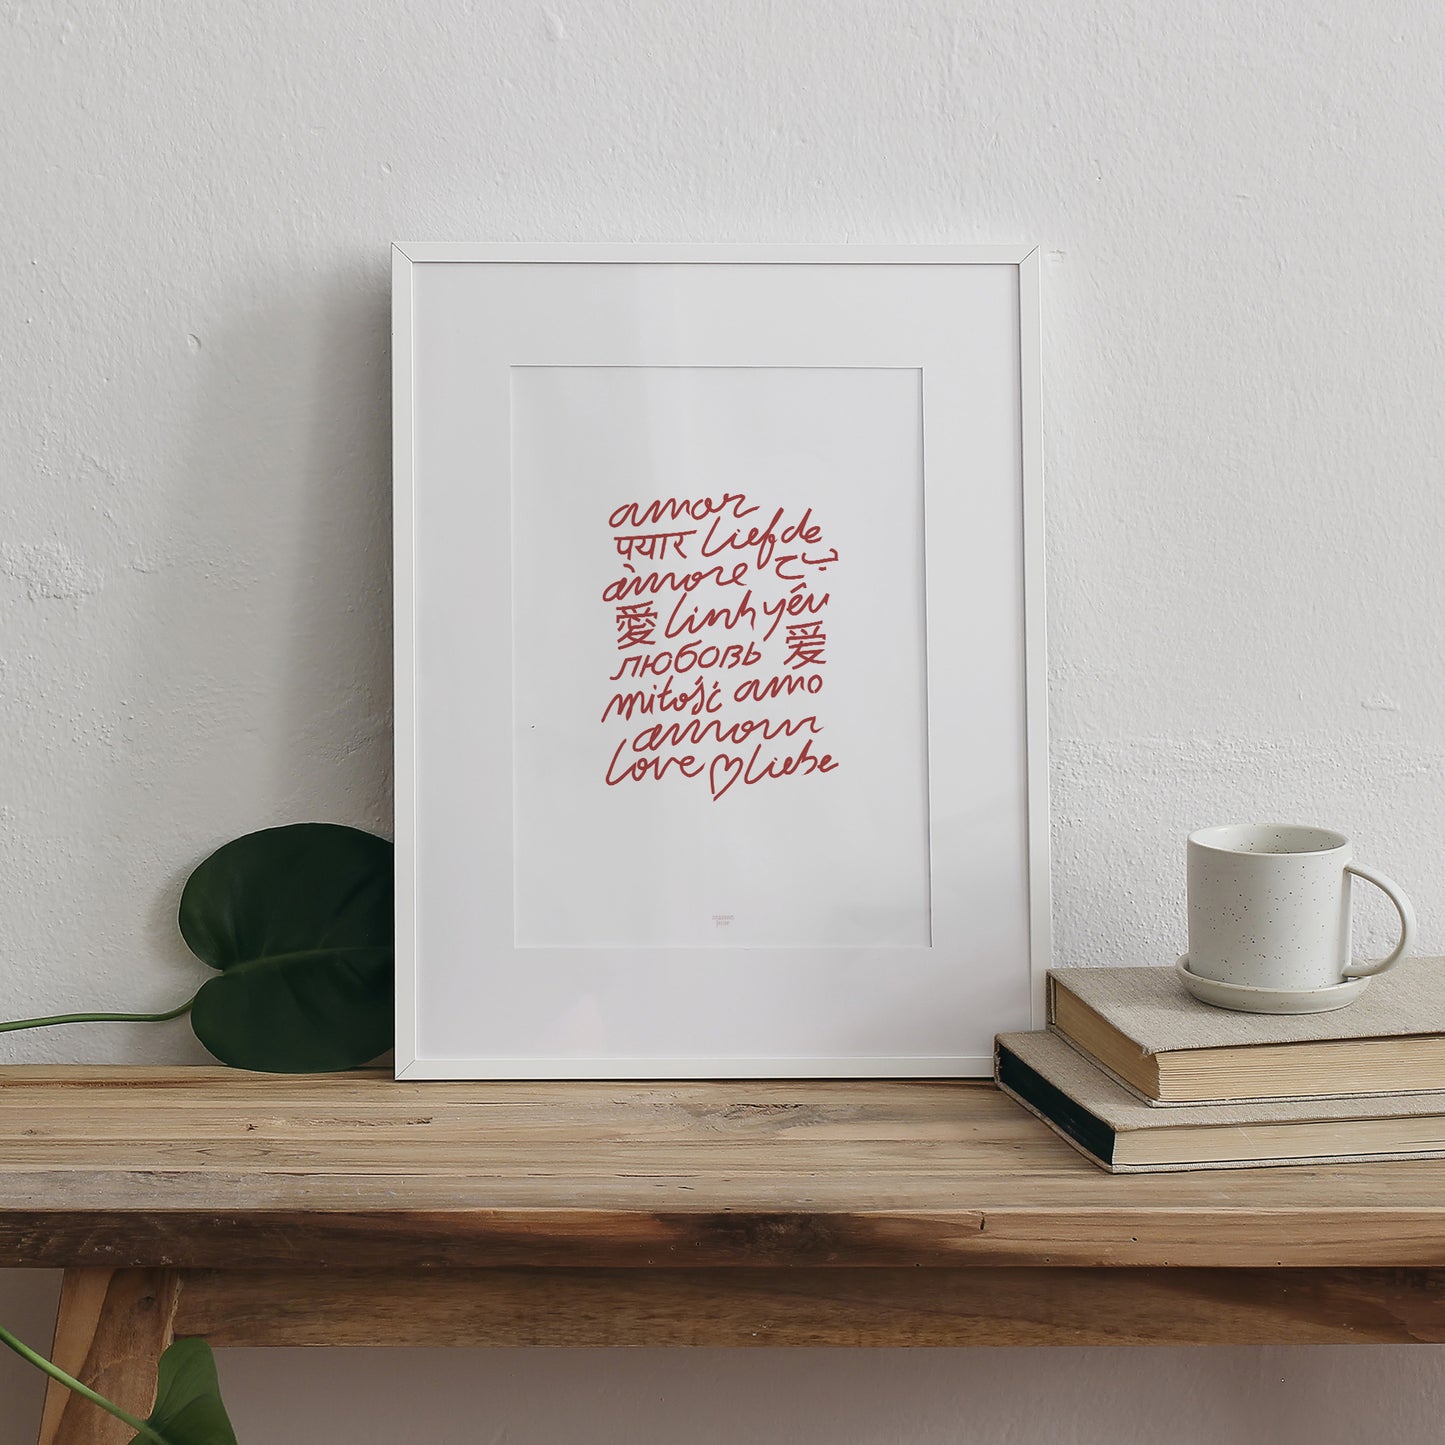 amor
पयार liefde
àmore ب ح
愛 linh yêu
любовь 爱
miłość amo
amour
love ♡ liebe